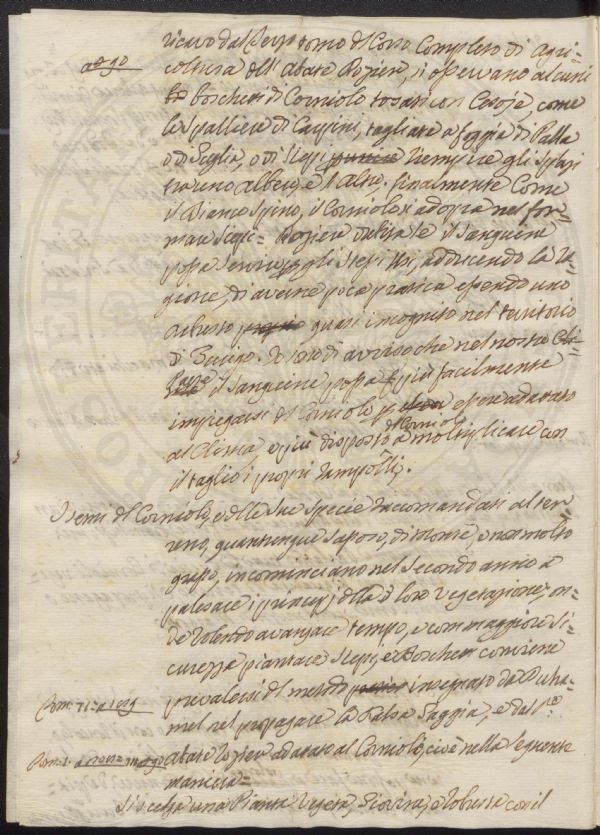 ricavo dal terzo tomo del Corso Completo di Agri=
coltura dell' Abate Rozier, si osservano alcuni
boschetti di Corniolo tosati con Cesoje, come
le spalliere di Carpini, tagliate a foggia di Palla
o di Siepi riempire gli spazj
tra uno Albero, e l'Altro. Finalmente Come
il Bianco Spino, il Corniolo si adopra nel for=
mare Siepi= Rozier dubita se il Sanguine
possa servire gli stepi Usi, adducendo la ra=
gione, di averne poca pratica essendo uno
arbusto quasi incognito nel territorio
di Io sono di avviso che nel nostro
il Sanguine possa più facilmente
impiegarsi del Corniolo p essere adattato
al Clima, e più disposto del Corniolo a moltiplicare con
il taglio i proprj rampolli.
I semi del Corniolo, e delle sue specie raccomandati al ter=
reno, quantunque saposo, di monte, e non molto
grasso, incominciano nel secondo anno a
palesare i principj della loro vegetazione, on=
de volendo avanzare tempo, e con maggiore si=
curezza piantare Siepi, e Boschetti conviene
prevalersi del metodo insegnato da Duha=
mel nel propagare la Falsa Saggia, e dal
abate Rozier adattato al Corniolo, cioè nella seguente
maniera=
Si scelga una Pianta Vegeta, Giovine, e robusta con il